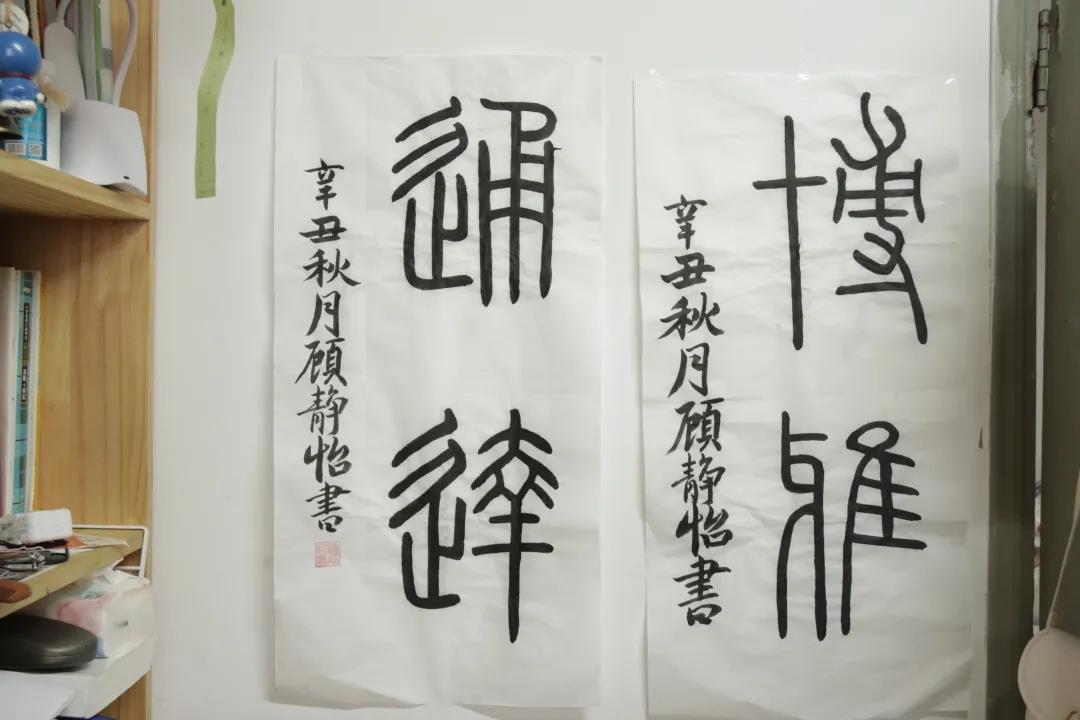 博雅
辛丑秋月顾静怡書
通達
辛丑秋月顾静怡書